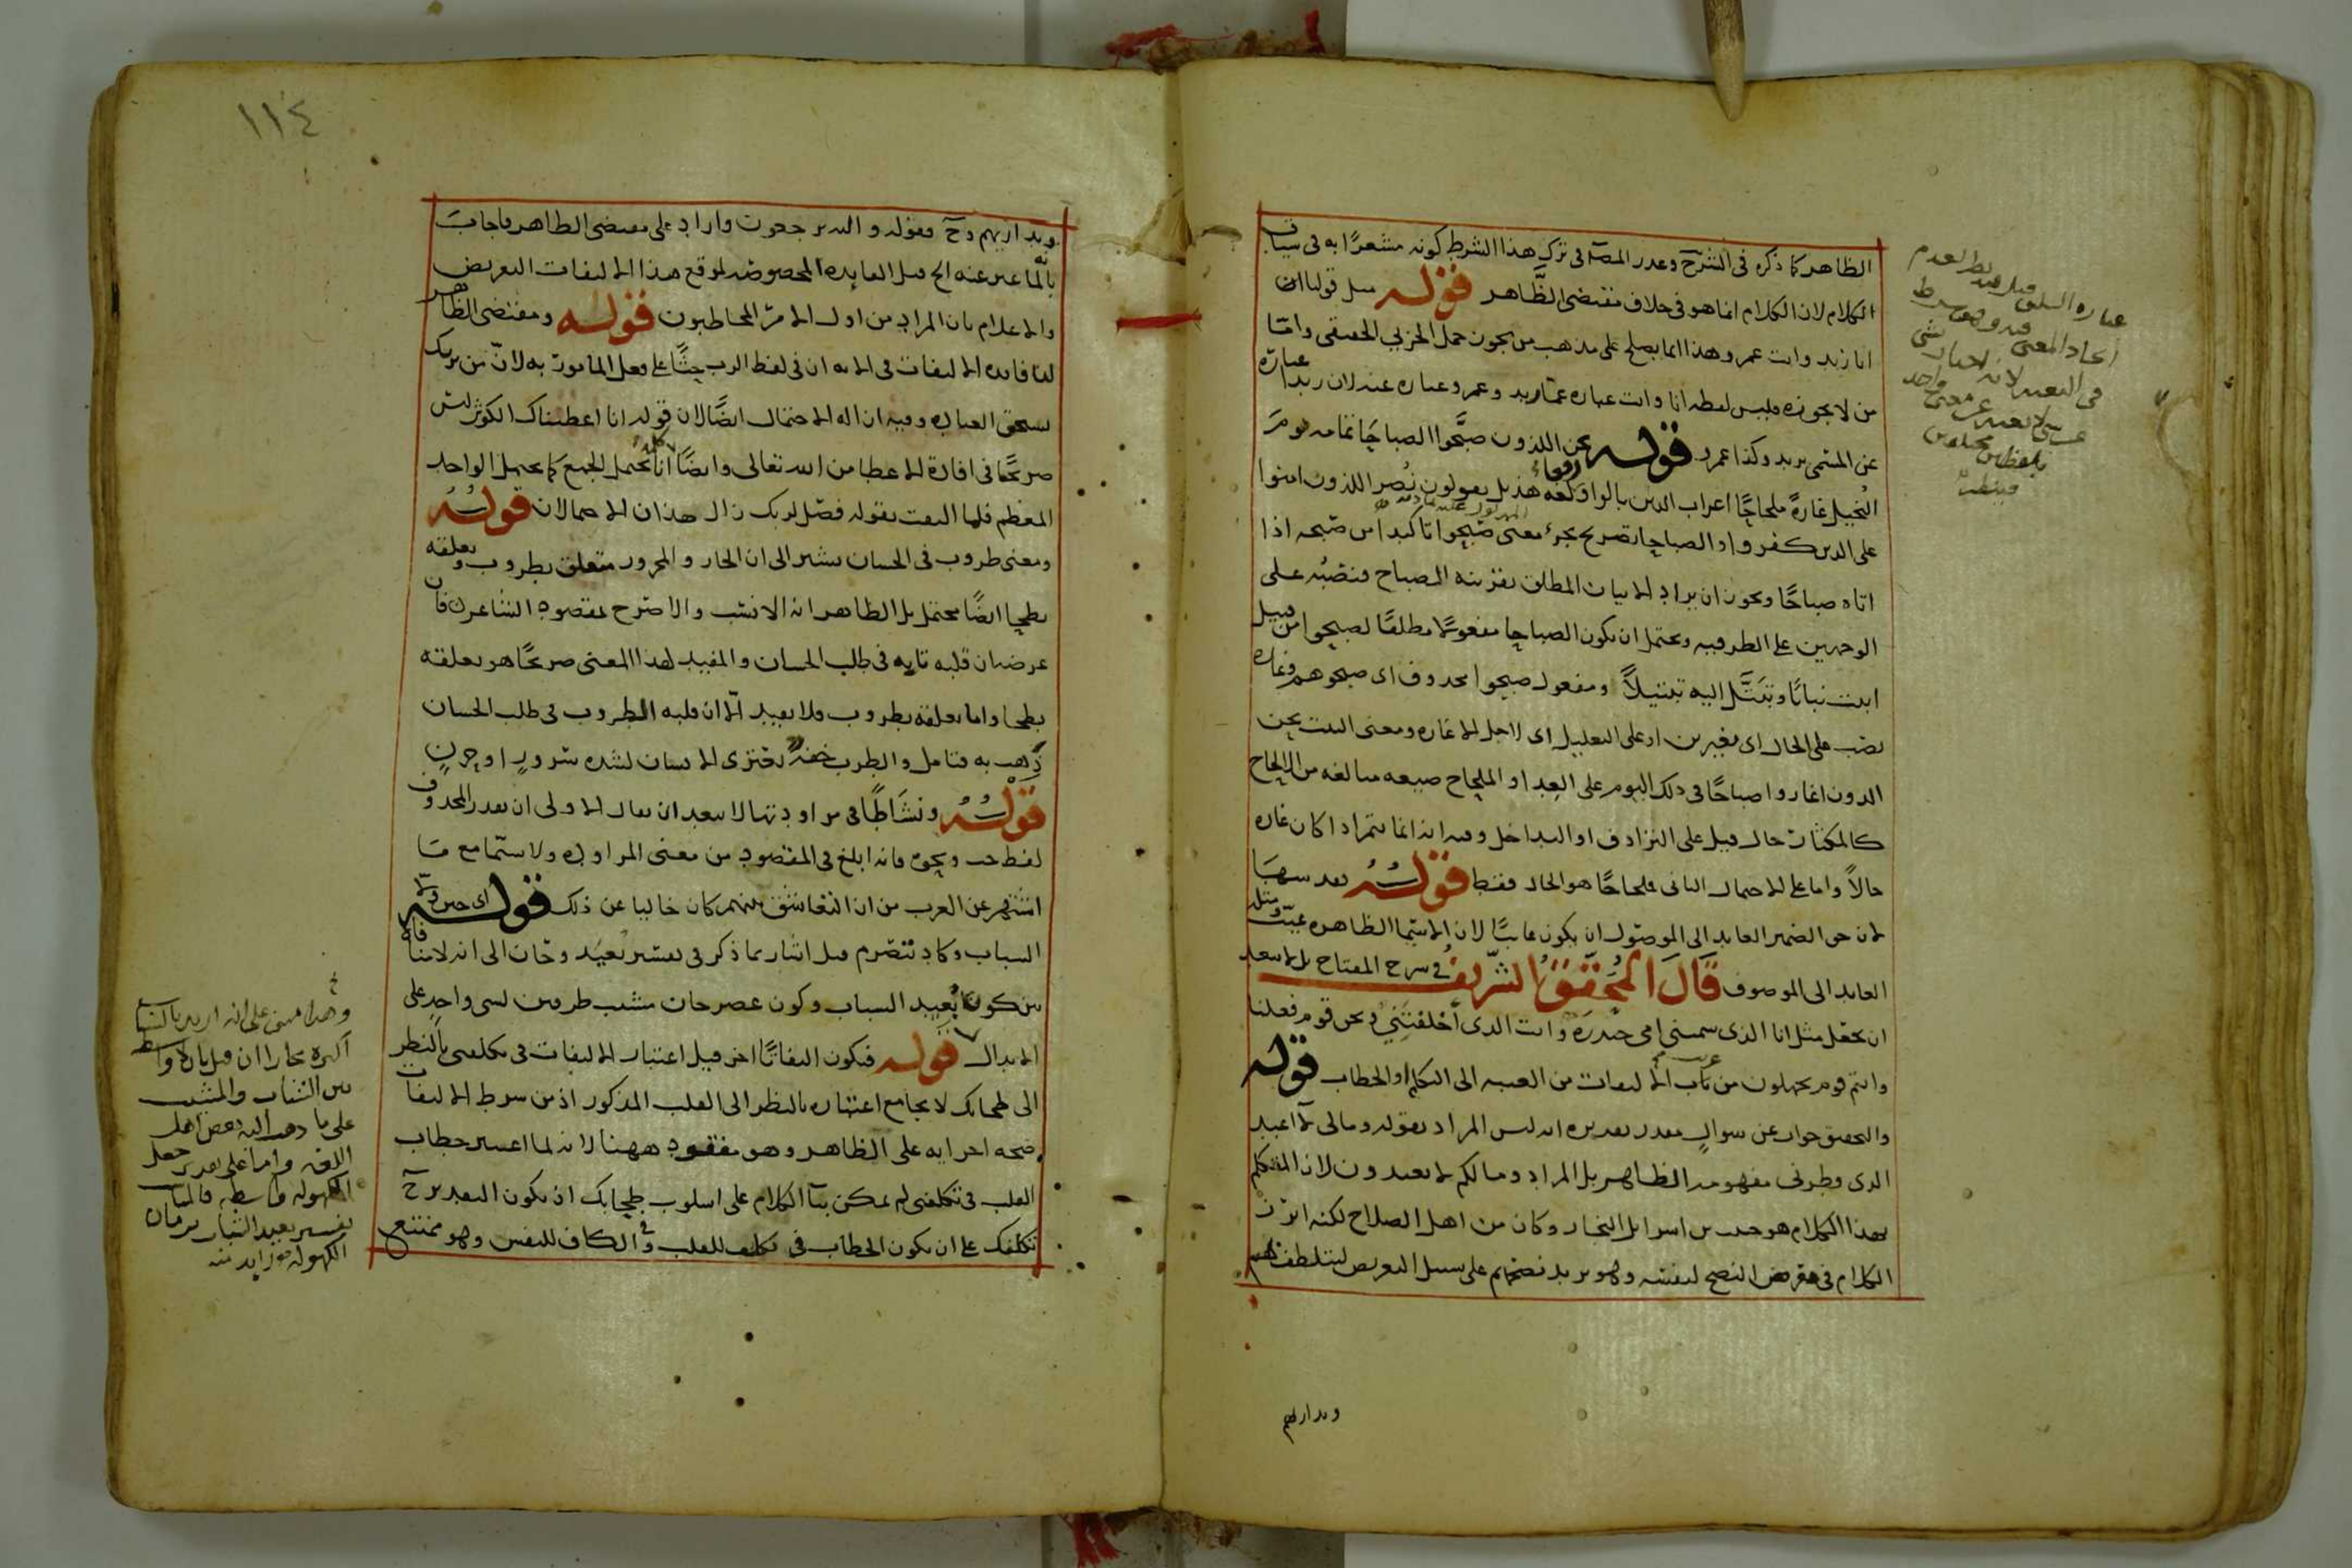 الظاهر كما ذكره في الشرح وعذر المصـ في ترك هذا الشرط كونه مشعرا به في سياق
الكلام لان الكلام انما هو في خلاف مقتضى الظاهر قوله مثل قولنا
انا زيد وانت عمرو وهذا انما يصلح على مذهب من يجوز حمل الجزئي الحقيقي واما
من لا يجوزه فليس لفظه انا وانت عباره عن زيد وعمرو عباره عنه لان زيدا عبارة
عن المسمى بزيد وكذا عمرو قوله نحن اللذون صبحوا الصباحا تمامه يوم
النخيل غارة ملحاحا اعراب الذين بالواو رفعا لغة هذيل يقولون نصر اللذون امنوا
على الذين كفروا والصباحا تصريح بجزء معنى صبحوا تاكيدا من صبحه اذا
اتاه صباحا ويجوز ان يراد الاتيان المطلق بقرينه الصباح فنصبه على
الوجهين على الظرفيه ويحتمل ان يكون الصباحا مفعولا مطلقا لصبحوا من قبيل
انبت نباتا وتبتل اليه تبتيلا ومفعول صبحوا محذوف اى صبحوهم وغارة
نصب على الحال اى مغيرين او على التعليل اى لاجل الاغاره ومعنى البيت نحن
الذون اغاروا صباحا في ذلك اليوم على العدا والملحاح صيغه مبالغه من الالحاح
كالمكثار حال قيل على الترادف او التداخل وفيه انه انما يتم اذا كان غارة
حالا واما على الاحتمال الثاني فلحاحا هو الحال فقط قوله بعد
لان حق الضمير العايد الى الموصول ان يكون غايبا لان الاسما الظاهره غيب ومثله
العايد الى الموصوف قال المحقق الشريف في شرح المفتاح بل لا يبعد
ان يجعل مثل انا الذى سمتني امي حيدره وانت الذى اخلفتني ونحن قوم فعلنا
وانتم قوم تجهلون من باب الالتفات من الغيبه الى التكلم او الخطاب قوله
والتحقيق جواب عن سوال مقدر تقديره انه ليس المراد بقوله ومالى لا اعبد
الذى فطرنى مفهومه الظاهر بل المراد وما لكم لا تعبدون لان المتكلم
بهذا الكلام هو حبيب بن اسرايل النجار وكان من اهل الصلاح لكنه ابرز
الكلام في معرض النصح لنفسه وهو يريد نصحهم على سبيل التعريض ليتلطف بهم
ويداريهم
عباره
اتحاد المعنى
في التعبير لانه
عن معنى واحد
بلفظين مختلفين
١١٤
ويداريهم وح فقوله واليه ترجعون وارد على مقتضى الظاهر فاجاب
بانه لما عبر عنه الخ قيل الفايده المخصوصه لموقع هذا الالتفات التعريض
والاعلام بان المراد من اول الامر المخاطبون قوله ومقتضى الظاهر
لنا فايدة الالتفات في الايه ان في لفظ الرب حثا على فعل المامور به لان من يربك
يستحق العبادة وفيه ازاله الاحتمال ايضا لان قوله انا اعطيناك الكوثر ليس
صريحا في افادة الاعطا من الله تعالى وايضا كلمة انا تحتمل الجمع كما تحتمل الواحد
المعظم فلما التفت بقوله فصل لربك زال هذان الاحتمالان قوله
ومعنى طروب في الحسان يشير الى ان الجار والمجرور متعلق بطروب وتعلقه
بطحا ايضا محتمل بل الظاهر انه الانسب والاصرح لمقصود الشاعر فان
غرضه ان قلبه تايه في طلب الحسان والمفيد لهذا المعنى صريحا هو تعلقه
بطحا واما تعلقه بطروب فلا يفيد الا ان قلبه الطروب في طلب الحسان
ذهب به فتامل والطرب خفة تعترى الانسان لشدة سرور او حزن
قوله ونشاطا في مراودتها لا يبعد ان يقال الاولى ان يقدر المحذوف
لفظ حب ونحوه فانه ابلغ في المقصود من معنى المراوده ولا سيما مع ما
اشتهر عن العرب من ان التعاشق بينهم كان خاليا عن ذلك قوله اى حين ولى
الشباب وكاد ينصرم قيل اشار بما ذكر في تفسير بعيد وحان الى انه لا منافاة
بين كون بعيد الشباب وكون عصر حان مشيب ظرفين لشى واحد على
الابدال قوله فيكون التفاتا اخر قيل اعتبار الالتفات في تكلفنى بالنظر
الى طحابك لا يجامع اعتباره بالنظر الى القلب المذكور اذ من شرط الالتفات
صحه اجرايه على الظاهر وهو مفقود ههنا لانه لما اعتبر خطاب
القلب في تكلفنى لم يمكن بنا الكلام على اسلوب طحابك اذ يكون التقدير ح
تكلفك على ان يكون الخطاب في تكلف للقلب وفي الكاف للنفس وهو ممتنع
وهذا مبنى على انه اريد بالشباب
بين الشباب والمشيب
على ما ذهب اليه بعض اهل
اللغه واما على تقدير جعل
الكهولة واسطه
تفسير بعيد الشباب بزمان
الكهوله